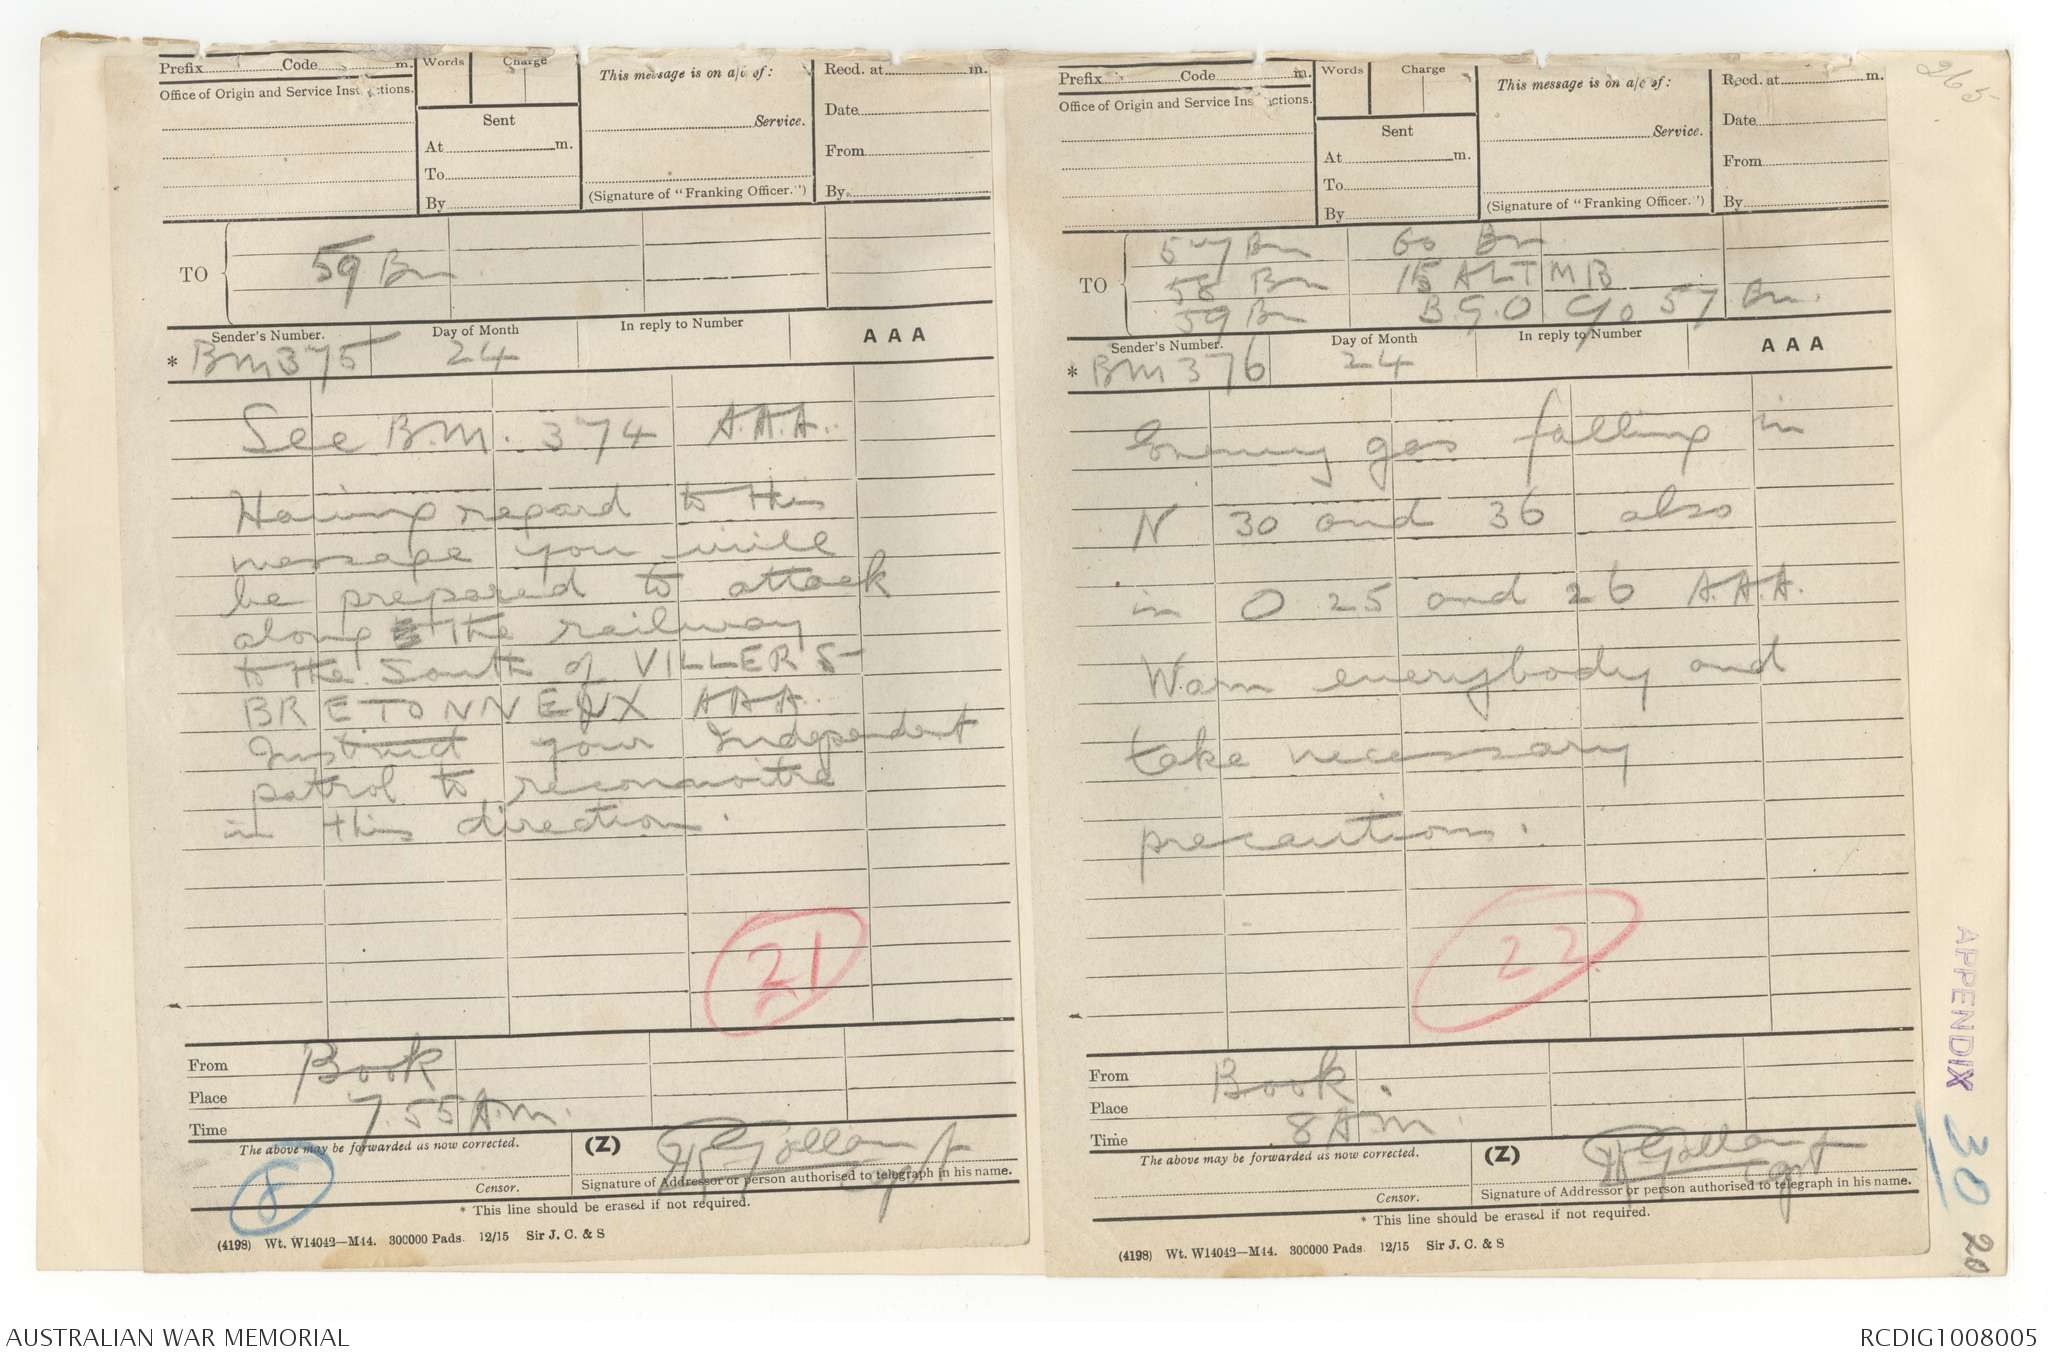 Prefix Code m.
Words Charge
This message is on a/c of:
Recd. at m.
Office of Origin and Service Instructions.
Sent
Service.
Date
At m.
From
To
(Signature of "Franking Officer.")
By
By
TO
59 Bn
Sender's Number.
Day of Month
In reply to Number
AAA
* BM375
24
See B.M. 374 A.A.A.
Having regard to this
message you will
be prepared to attack
along the railway
to the South of VILLERS-
BRETONNEUX AAA.
Instruct your Independent
patrol to reconnoitre
in this direction.
21
From
Book
Place
Time
7.55 A.M.
The above may be forwarded as now corrected.
(Z)
Capt
Censor.
Signature of Addressor or person authorised to telegraph in his name.
* This line should be erased if not required.
8
(4198) Wt. W14042—M44. 300000 Pads. 12/15 Sir J. C. & S
265
Prefix Code m.
Words Charge
This message is on a/c of:
Recd. at m.
Office of Origin and Service Instructions.
Sent
Service.
Date
At m.
From
To
(Signature of "Franking Officer.")
By
By
TO
57 Bn 60 Bn
58 Bn 15 ALTMB
59 Bn B.G.O C/o 57 Bn.
Sender's Number.
Day of Month
In reply to Number
AAA
* BM 376
24
Enemy gas falling in
N 30 and 36 also
in O 25 and 26 A.A.A.
Warn everybody and
take necessary
precautions.
22
From
Book.
Place
Time
8 AM.
The above may be forwarded as now corrected.
(Z)
Capt
Censor.
Signature of Addressor or person authorised to telegraph in his name.
* This line should be erased if not required.
(4198) Wt. W14042—M44. 300000 Pads. 12/15 Sir J. C. & S
APPENDIX 30
20
AUSTRALIAN WAR MEMORIAL
RCDIG1008005